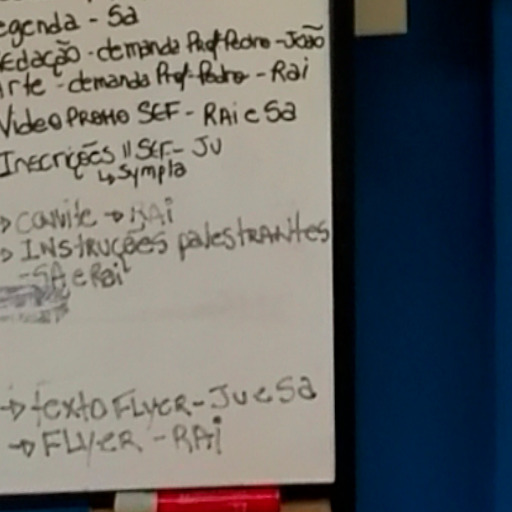 egenda - Sa
edação - demanda Prof. Pedro - João
Arte - demanda Prof. Pedro - Rai
Video PROMO SEF - RAi e Sa
INscrições II SEF - JU
↳ Sympla
→ convite → RAi
→ INSTRUÇÕES palestrANtes
- SA e Rai
→ texto FLYER - Ju e Sa
→ FLYER - RAi